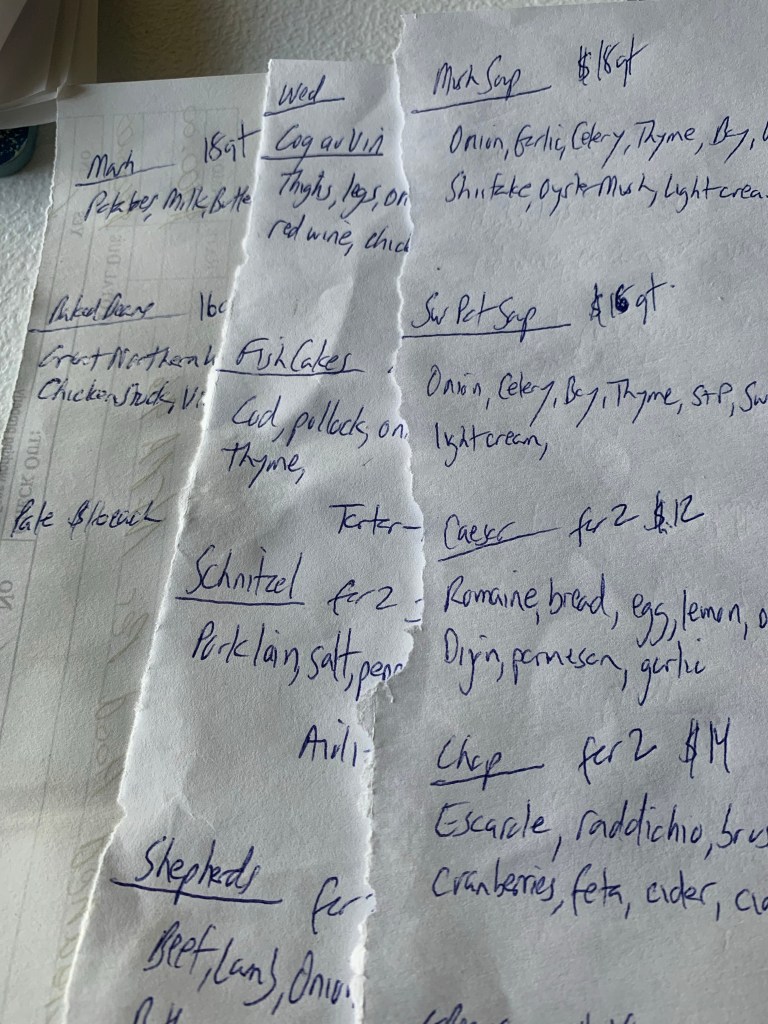 Mash 18qt
Potatoes, Milk, Butte
Baked Beans 16q
Great Northern
Chicken Stock, Vi
Pate
CK OUT:
NO
Wed
Coq au Vin
Thighs, legs, on
red wine, chic
Fish Cakes
Cod, pollock, on
thyme,
Tarter-
Schnitzel for 2
Pork loin, salt, pepp
Aioli-
Shepherds for
Beef, Lamb, Onion
Mush Soup $18qt
Onion, Garlic, Celery, Thyme, Bay,
Shiitake, Oyster Mush, Light crea
Sw Pot Soup $16qt.
Onion, Celery, Bay, Thyme, S+P, Sw
lightcream,
Caesar for 2 $12
Romaine, bread, egg, lemon, o
Dijn, parmesan, garlic
Chop for 2 $14
Escarole, raddichio, brus
Cranberries, feta, cider,